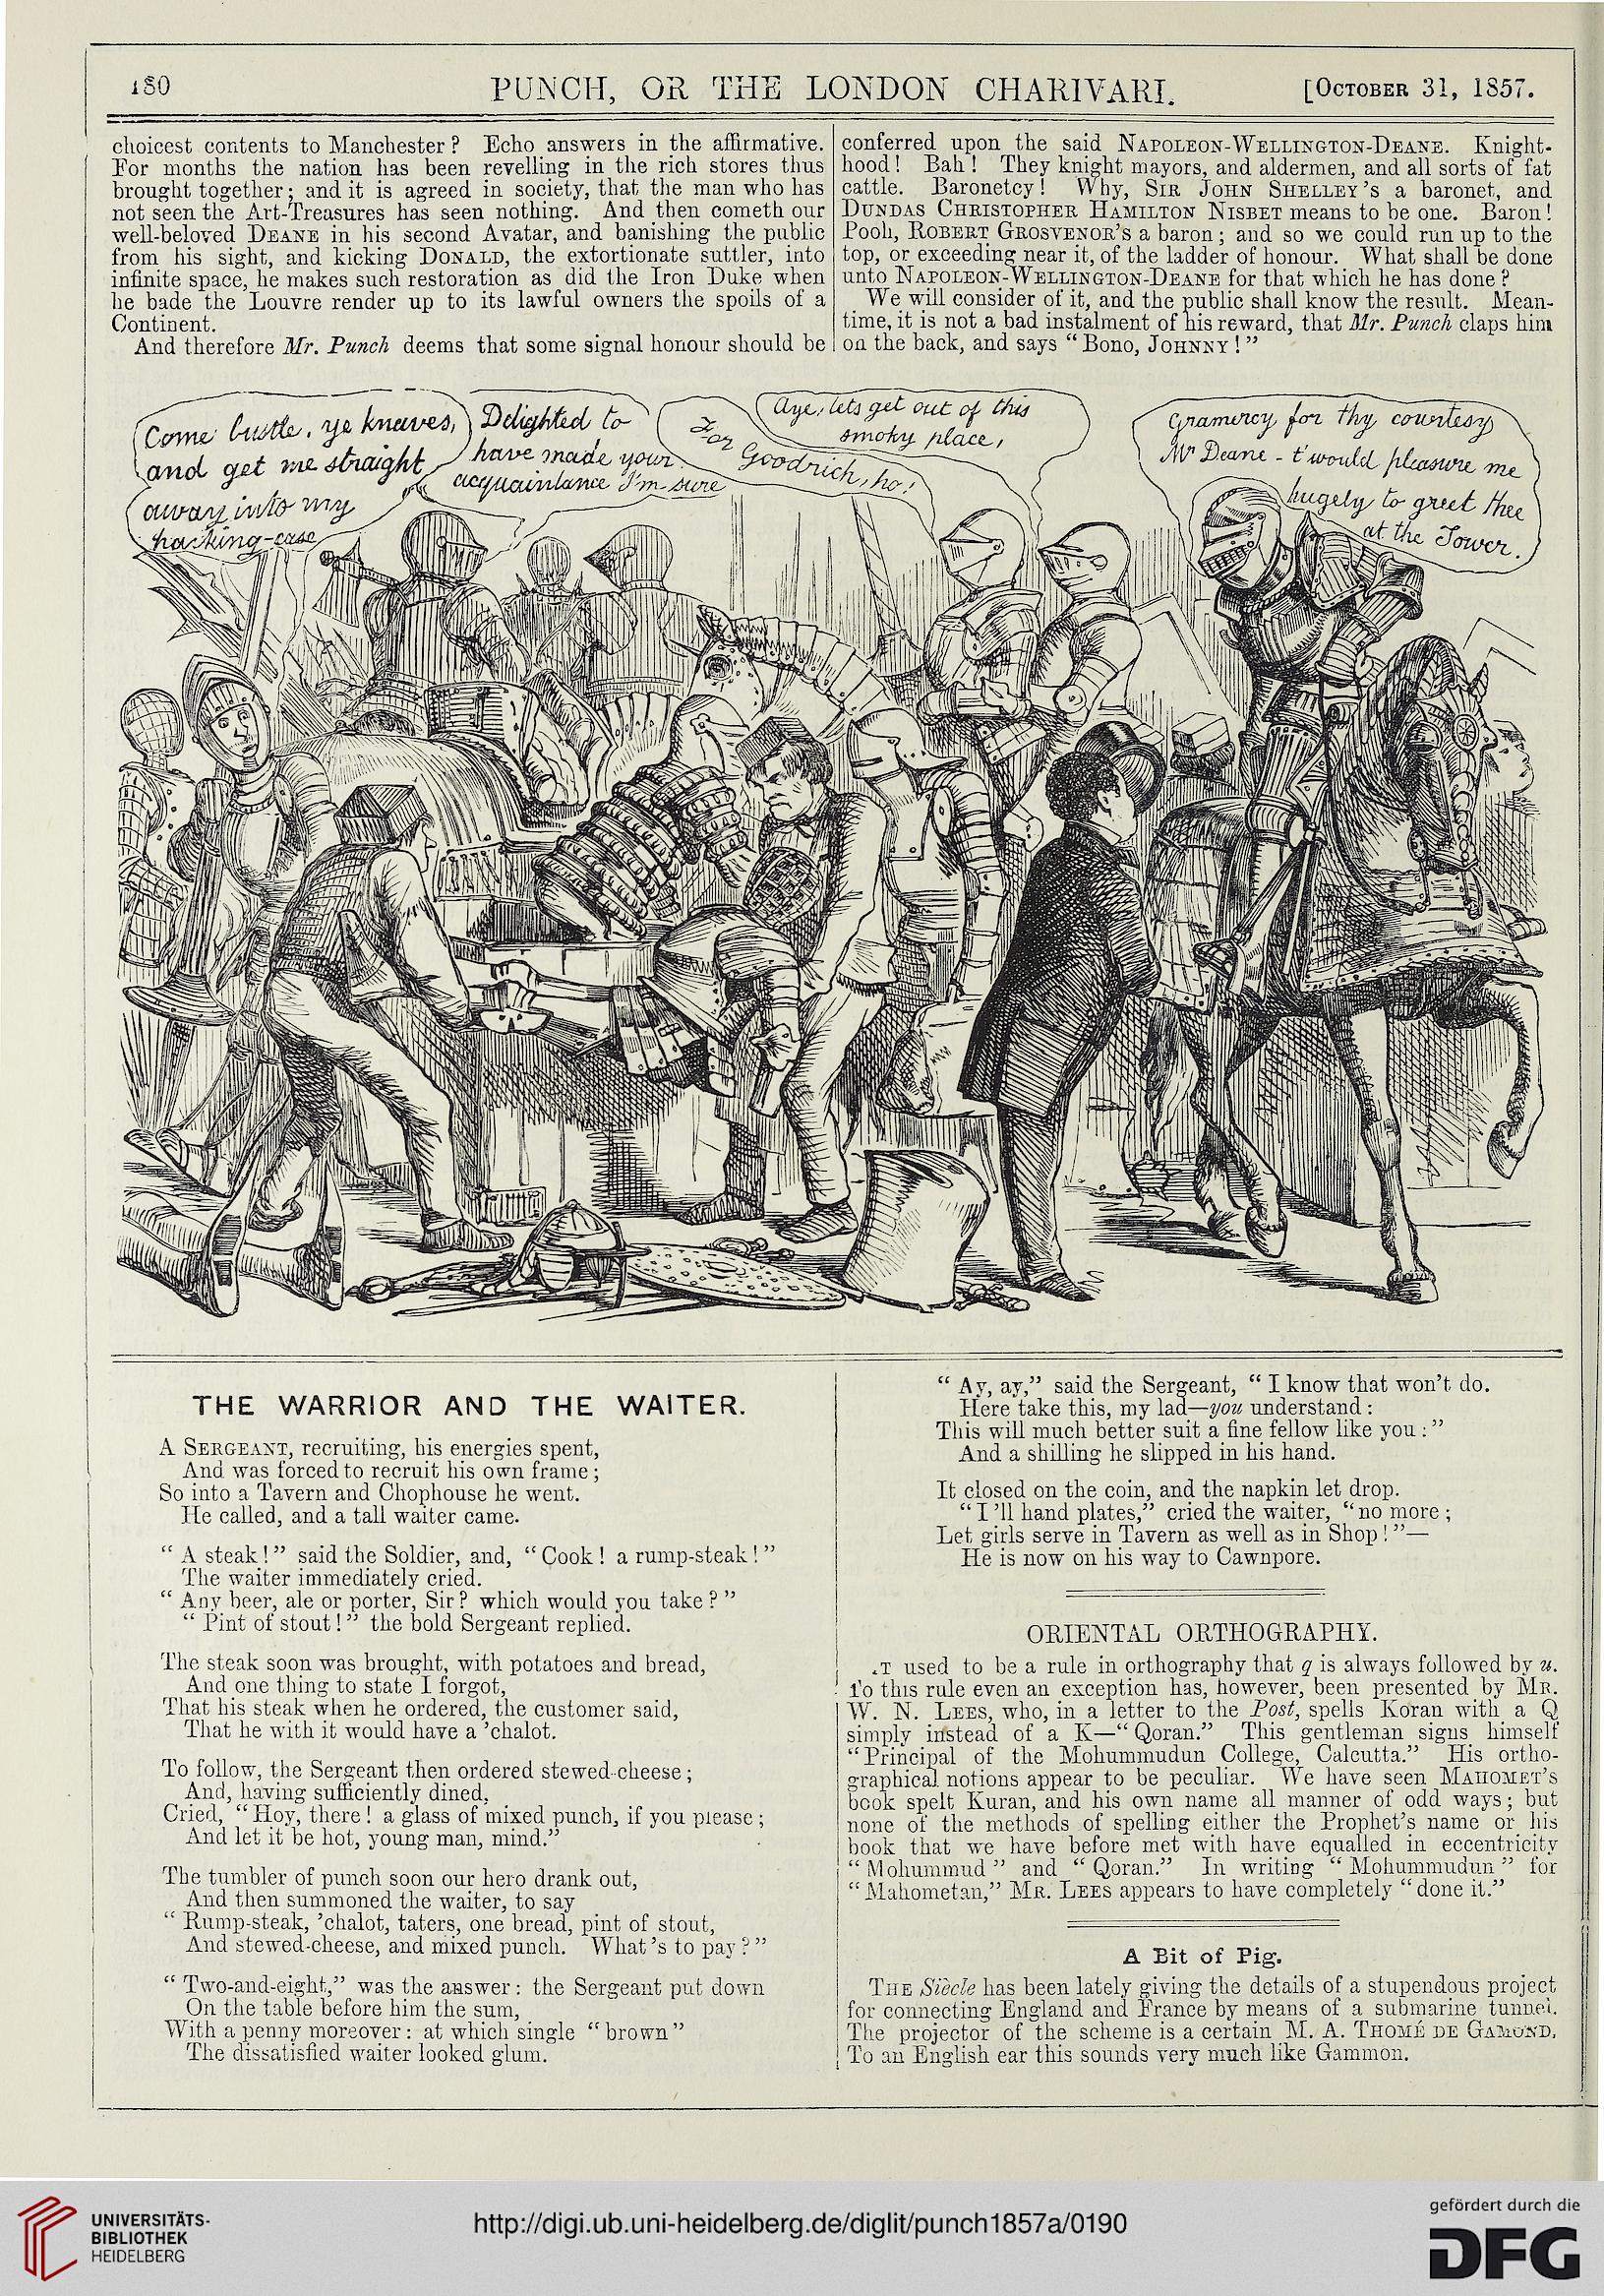 180
PUNCH, OR THE LONDON CHARIVARI.
[OCTOBER 31, 1857.
choicest contents to Manchester? Echo answers in the affirmative.
For months the nation has been revelling in the rich stores thus
brought together; and it is agreed in society, that the man who has
not seen the Art-Treasures has seen nothing. And then cometh our
well-beloved DEANE in his second Avatar, and banishing the public
from his sight, and kicking DONALD, the extortionate suttler, into
infinite space, he makes such restoration as did the Iron Duke when
he bade the Louvre render up to its lawful owners the spoils of a
Continent.
And therefore Mr. Punch deems that some signal honour should be
conferred upon the said NAPOLEON-WELLINGTON-DEANE. Knight-
hood! Bah! They knight mayors, and aldermen, and all sorts of fat
cattle. Baronetcy! Why, SIR JOHN SHELLEY'S a baronet, and
DUNDAS CHRISTOPHER HAMILTON NISBET means to be one. Baron!
Pooh, ROBERT GROSVENOR'S a baron; and so we could run up to the
top, or exceeding near it, of the ladder of honour. What shall be done
unto NAPOLEON-WELLINGTON-DEANE for that which he has done?
We will consider of it, and the public shall know the result. Mean-
time, it is not a bad instalment of his reward, that Mr. Punch claps him
on the back, and says "Bono, JOHNNY!"
Come bustle, ye knaves,
and get me straight
away into my
packing-case
Delighted to
have made your
acquaintance I'm sure
For
Goodrich, ho!
Aye, lets get out of this
smoky place,
Gramercy for thy courtesy
Mr Deane - t'would pleasure me
hugely to greet thee
at the Tower.
THE WARRIOR AND THE WAITER.
A SERGEANT, recruiting, his energies spent,
And was forced to recruit his own frame;
So into a Tavern and Chophouse he went.
He called, and a tall waiter came.
"A steak!" said the Soldier, and, "Cook! a rump-steak!"
The waiter immediately cried.
"Any beer, ale or porter, Sir? which would you take?"
"Pint of stout!" the bold Sergeant replied.
The steak soon was brought, with potatoes and bread,
And one thing to state I forgot,
That his steak when he ordered, the customer said,
That he with it would have a 'chalot.
To follow, the Sergeant then ordered stewed-cheese;
And, having sufficiently dined,
Cried, "Hoy, there! a glass of mixed punch, if you please;
And let it be hot, young man, mind."
The tumbler of punch soon our hero drank out,
And then summoned the waiter, to say
"Rump-steak, 'chalot, taters, one bread, pint of stout,
And stewed-cheese, and mixed punch. What's to pay?"
"Two-and-eight," was the answer: the Sergeant put down
On the table before him the sum,
With a penny moreover: at which single "brown"
The dissatisfied waiter looked glum.
"Ay, ay," said the Sergeant, "I know that won't do.
Here take this, my lad—you understand:
This will much better suit a fine fellow like you:"
And a shilling he slipped in his hand.
It closed on the coin, and the napkin let drop.
"I'll hand plates," cried the waiter, "no more;
Let girls serve in Tavern as well as in Shop!"—
He is now on his way to Cawnpore.
ORIENTAL ORTHOGRAPHY.
IT used to be a rule in orthography that q is always followed by u.
To this rule even an exception has, however, been presented by MR.
W. N. LEES, who, in a letter to the Post, spells Koran with a Q
simply instead of a K—"Qoran." This gentleman signs himself
"Principal of the Mohummudun College, Calcutta." His ortho-
graphical notions appear to be peculiar. We have seen MAHOMET'S
book spelt Kuran, and his own name all manner of odd ways; but
none of the methods of spelling either the Prophet's name or his
book that we have before met with have equalled in eccentricity
"Mohummud" and "Qoran." In writing "Mohummudun" for
"Mahometan," MR. LEES appears to have completely "done it."
A Bit of Pig.
THE Siècle has been lately giving the details of a stupendous project
for connecting England and France by means of a submarine tunnel.
The projector of the scheme is a certain M. A. THOMÉ DE GAMOND,
To an English ear this sounds very much like Gammon.
UNIVERSITÄTS-
BIBLIOTHEK
HEIDELBERG
http://digi.ub.uni-heidelberg.de/diglit/punch1857a/0190
gefördert durch die
DFG